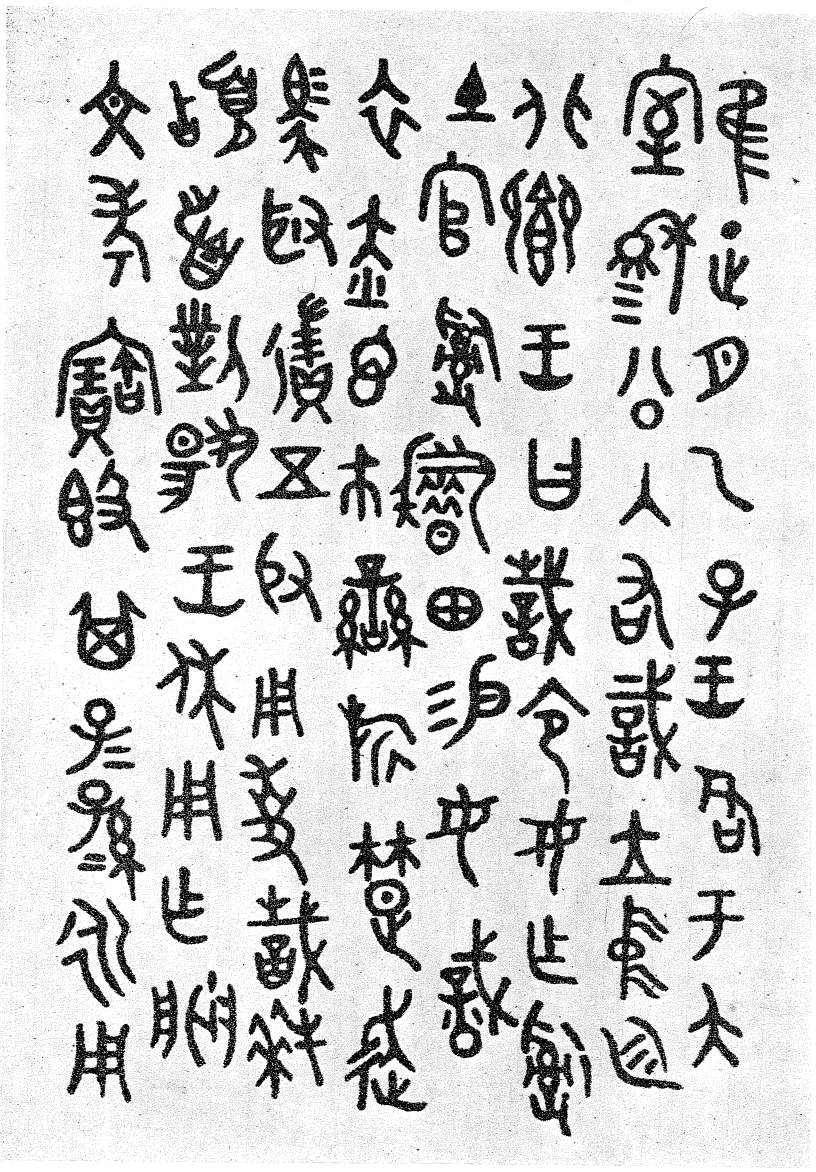 隹正月乙子王各于大
室穆公入右𢦚立中廷
北鄉王曰𢦚令女乍𤔲
土官𤔲耤田易女戠
衣赤𢁒巿䜌旂楚走
馬取徵五寽用事𢦚拜
𩒨首對揚王休用乍朕
文考寶𣪘其子=孫=永用